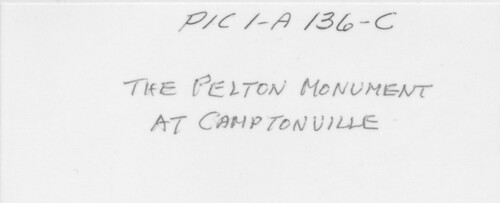 PIC 1-A 136-C
THE PELTON MONUMENT
AT CAMPTONVILLE